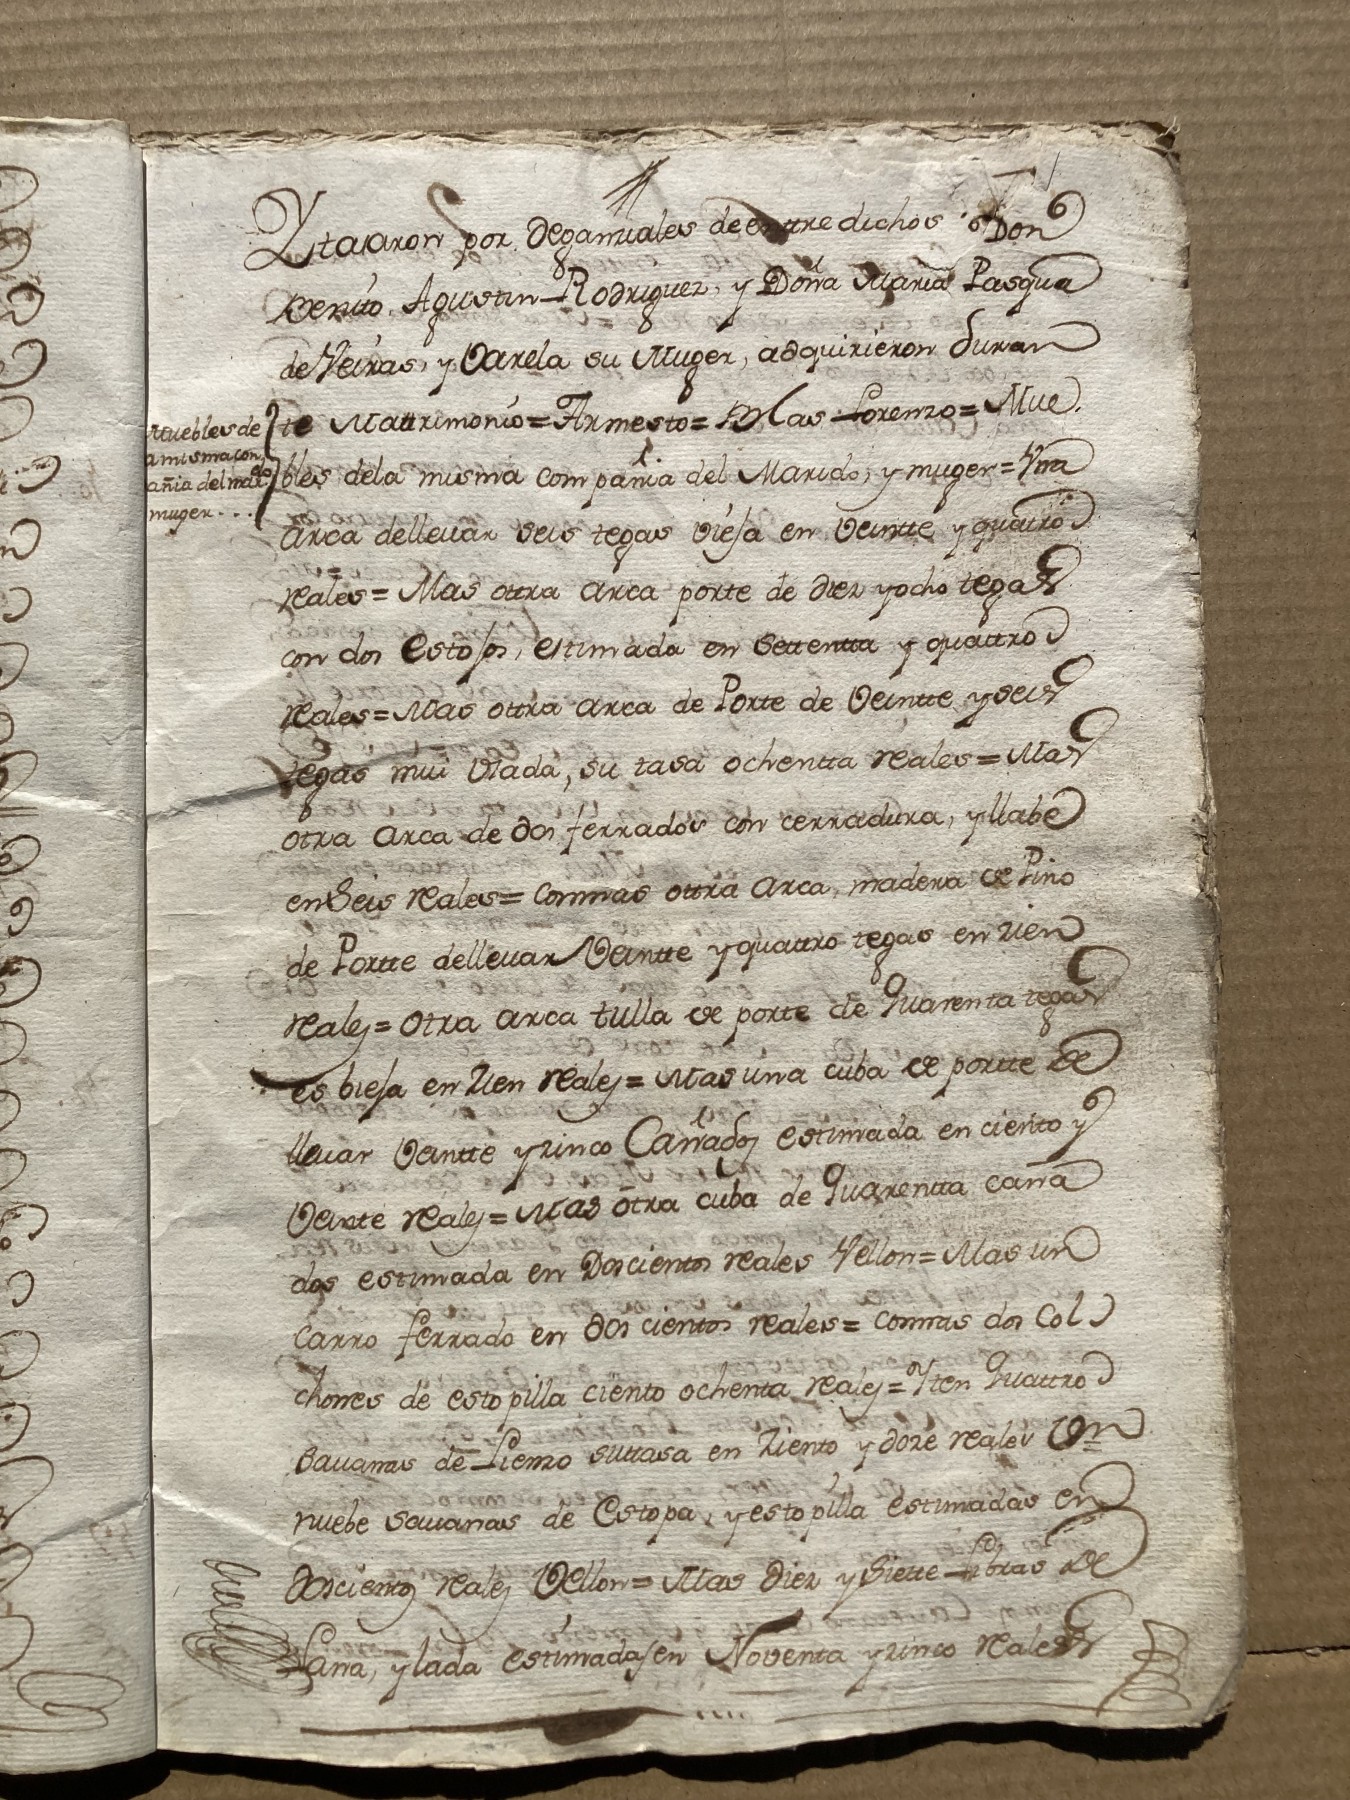 Ytasaron por deganniales de entre dichos Don
Benito Agustin Rodriguez, y Doña Maria Pasqua
de Neiras, y Varela su Muger, adquirieron Duran
te Mattrimonio = Armesto = Mas Lorenzo = Mue
Muebles de
a misma con
pañia del marido
muger...
bles dela misma compañia del Marido, y muger = Vna
Arca dellevar seis tegas viesa en veintte y quattro
reales = Mas ottra arca porte de diez yocho tegas
con dos estosos, estimada en settentta y quattro
reales = Mas ottra arca de Porte de veintte y seis
tegas mui vsada, su tasa ochentta reales = Mas
otra Arca de dos ferrados con cerradura, y llabe
en Seis reales = conmas ottra Arca, madera de Pino
de Portte dellevar Veintte y quattro tegas en zien
reales = otra arca tulla de porte de quarenta tegas
es biesa en zien reales = Mas una cuba de portte de
llevar Veintte y zinco Cañados estimada en ciento y
Veinte reales = Mas otra cuba de quarentta caña
dos estimada en Doscientos reales Vellon = Mas un
carro ferrado en doscientos reales = conmas dos Col
chones de estopilla ciento ochenta reales = Yten quattro
savanas de Lienzo suttasa en ziento y doze reales Vn
nuebe savanas de Estopa, y estopilla estimadas en
doscientos reales Vellon = Mas diez y Siette libras de
Lana, y lada estimadas en Noventa y zinco reales